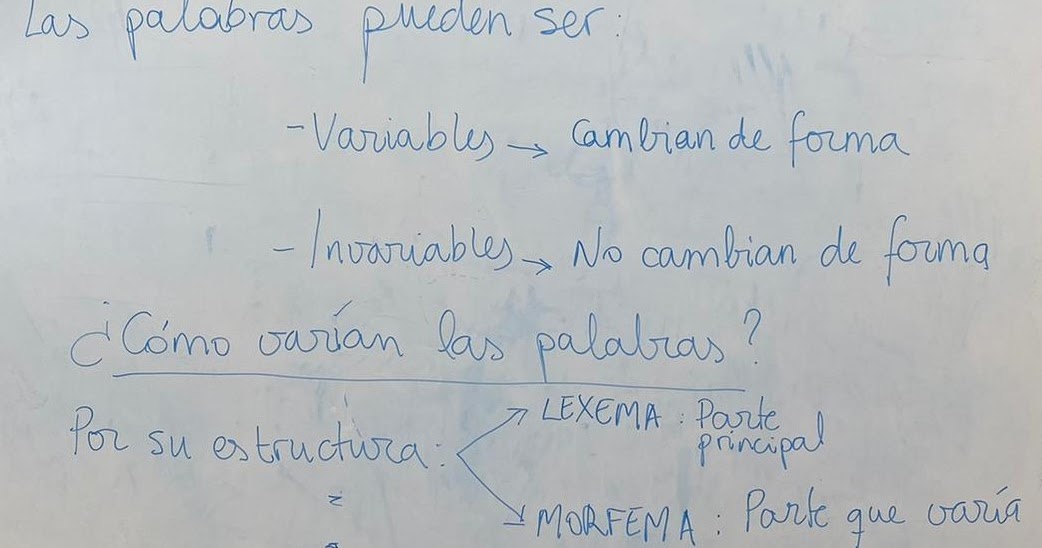 Las palabras pueden ser:
- Variables → Cambian de forma
- Invariables → No cambian de forma
¿Cómo varían las palabras?
Por su estructura:
LEXEMA: Parte principal
MORFEMA: Parte que varía